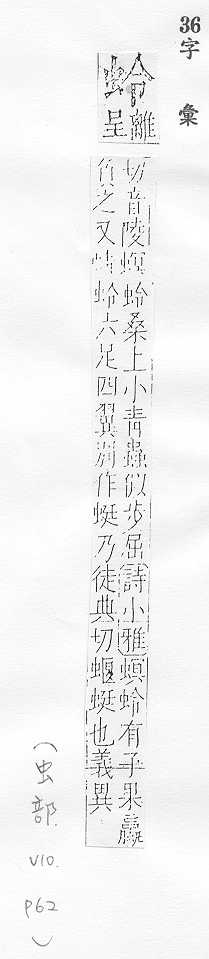 36字 彙
蛉
離
呈
切音陵螟蛉桑上小青蟲似步屈詩小雅螟蛉有子果蠃
負之又蜻蛉六足四翼別作蜓乃徒典切蝘蜓也義異
(虫部. V10. P62)